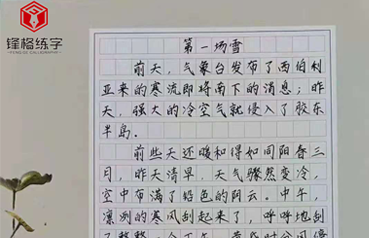 锋格练字
第一场雪
前天，气象台发布了西伯利
亚来的寒流即将南下的消息；昨
天，强大的冷空气就侵入了胶东
半岛。
前些天还暖和得如同阳春三
月，昨天清早，天气骤然变冷，
空中布满了铅色的阴云。中午，
凛冽的寒风刮起来了，呼呼地刮